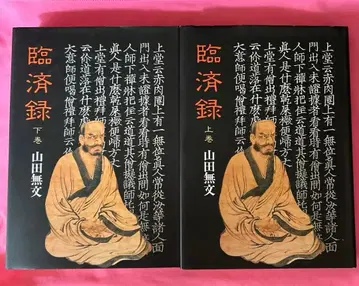 臨済録
上巻
山田無文
上堂云赤肉團上有一無位真人常從汝等諸人面
門出入未證據者看看時有僧出問如何是無
人師下禪牀把住云道道其僧擬議師托
真人是什麼乾屎橛便歸方丈
上堂有僧出禮拜師
云你道落在什麼
大意師便喝僧禮拜師云
臨済録
下巻
山田無文
上堂云赤肉團上有一無位真人常從汝等諸人面
門出入未證據者看看時有僧出問如何是無
人師下禪牀把住云道道其僧擬議師托
真人是什麼乾屎橛便歸方丈
上堂有僧出禮拜師
云你道落在什麼
大意師便喝僧禮拜師云